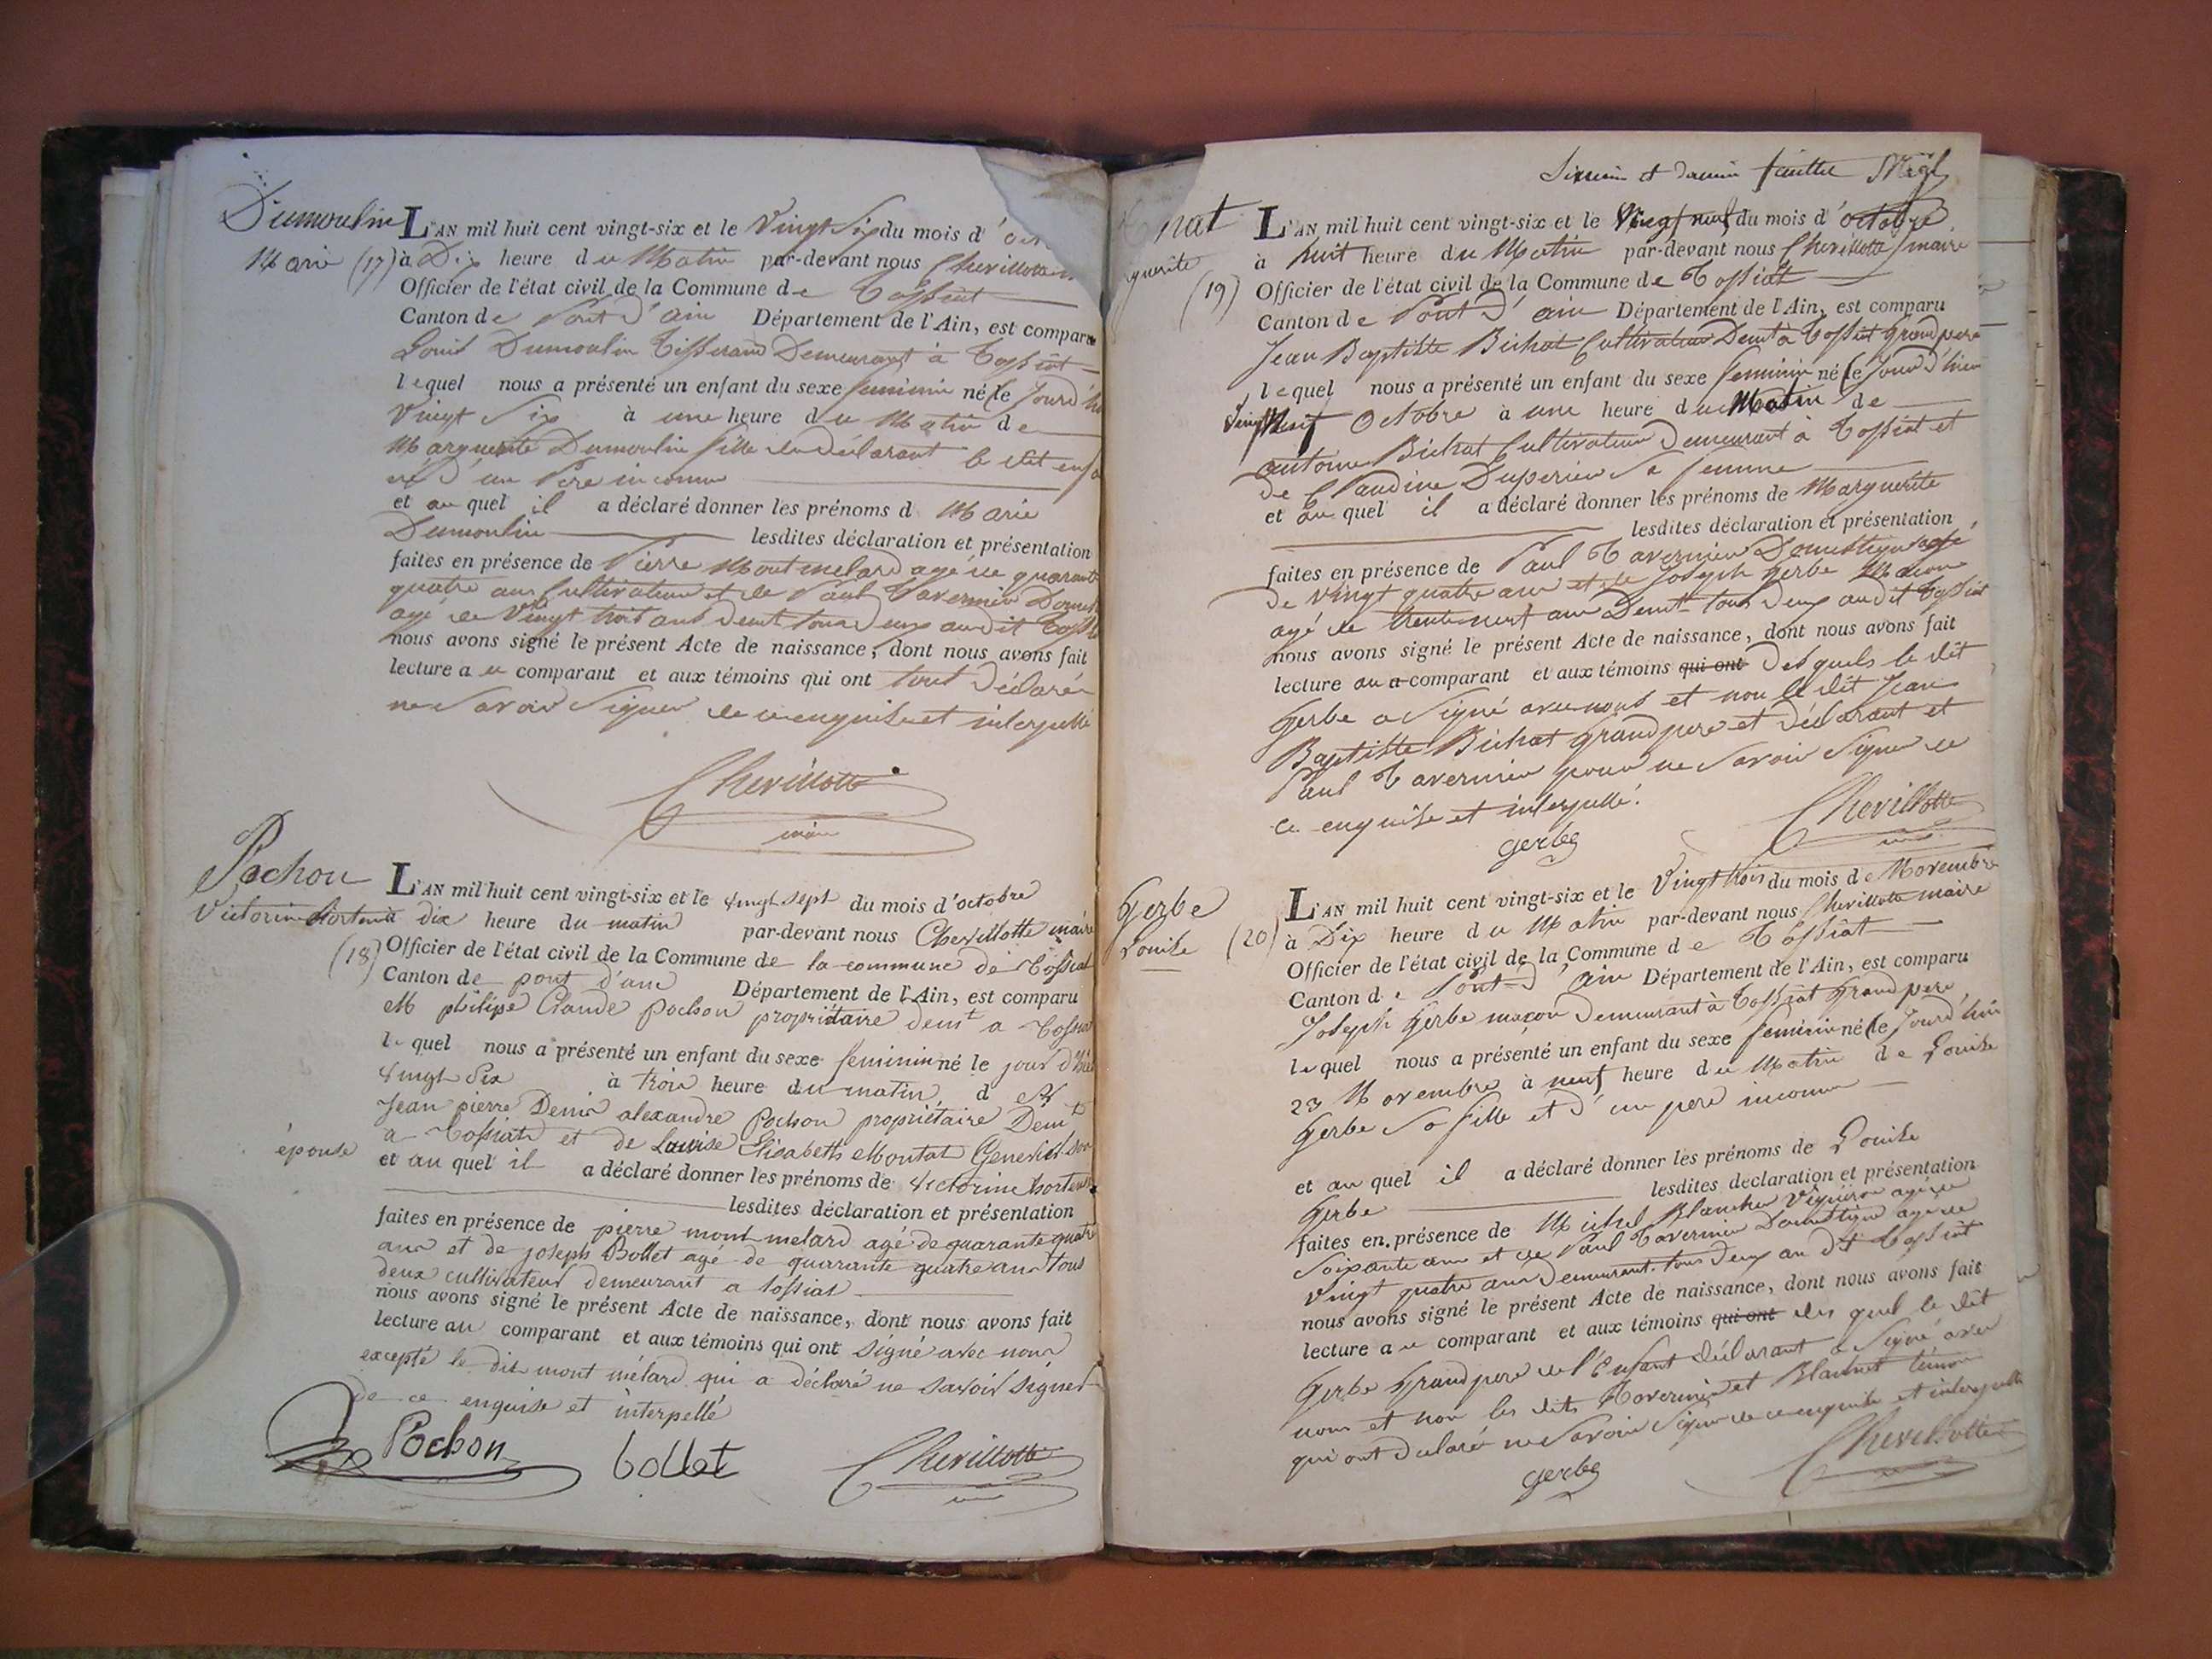 Dumoulin
Marie (17)
L'AN mil huit cent vingt-six et le Vingt Six du mois d'
à Dix heure du Matin par-devant nous Chevillotte
Officier de l'état civil de la Commune de Tossiat
Canton de Pont d'ain Département de l'Ain, est comparu
Louis Dumoulin Tisserand Demeurant à Tossiat
lequel nous a présenté un enfant du sexe feminin né le Jourd'hui
Vingt Six à une heure du Matin de
Marguerite Dumoulin fille du déclarant le dit enfa
né d'un Pere inconnu
et au quel il a déclaré donner les prénoms d Marie
Dumoulin lesdites déclaration et présentation
faites en présence de Pierre Montmelard agé de quarante
quatre ans Cultivateur et de Paul Tavernier Domest
agé de Vingt trois ans demt tous deux au dit Toss
nous avons signé le présent Acte de naissance, dont nous avons fait
lecture au comparant et aux témoins qui ont tout Déclaré
ne Savoir Signer de ce enquise et interpellé
Chevillotte
maire
Pochon
Victorine hortense
(18)
L'AN mil huit cent vingt-six et le vingt sept du mois d'octobre
à dix heure du matin par-devant nous Chevillotte maire
Officier de l'état civil de la Commune de la commune de Tossiat
Canton de pont d'ain Département de l'Ain, est comparu
M philipe Claude pochon propriétaire demt a Tossiat
lequel nous a présenté un enfant du sexe feminin né le jour d'hier
vingt Six à trois heure du matin, d M
Jean pierre Denis alexandre Pochon propriétaire Demt
a Tossiat et de Louise Elisabeth Montat Genevist son
épouse
et au quel il a déclaré donner les prénoms de Victorine hortense
lesdites déclaration et présentation
faites en présence de pierre mont-melard agé de quarante quatre
ans et de joseph Bollet agé de quarante quatre ans tous
deux cultivateurs demeurant a tossiat
nous avons signé le présent Acte de naissance, dont nous avons fait
lecture au comparant et aux témoins qui ont signé avec nous
excepté le dit mont mélard qui a déclaré ne savoir signer
de ce enquise et interpellé
Pochon bollet Chevillotte
feuillet
nat
guerite
(19)
L'AN mil huit cent vingt-six et le Vingt neuf du mois d'octobre
à huit heure du Matin par-devant nous Chevillotte maire
Officier de l'état civil de la Commune de Tossiat
Canton de Pont D'ain Département de l'Ain, est comparu
Jean Baptiste Bichat Cultivateur Demt à Tossiat Grand pere
lequel nous a présenté un enfant du sexe feminin né le Jour d'hier
Vingt huit Octobre à une heure du Matin de
antoine Bichat Cultivateur Demeurant à Tossiat et
de Claudine Duperier Sa femme
et au quel il a déclaré donner les prénoms de Marguerite
lesdites déclaration et présentation
faites en présence de Paul Tavernier Domestique agé
De vingt quatre ans et de Joseph Gerbe Maçon
agé de trente neuf ans Demt tous deux au dit Tossiat
nous avons signé le présent Acte de naissance, dont nous avons fait
lecture au a comparant et aux témoins qui ont Desquels le dit
Gerbe a Signé avec nous et non le dit Jean
Baptiste Bichat grand pere et déclarant et
Paul Tavernier pour ne Savoir Signer de
ce enquise et interpellé.
gerbe Chevillotte
Gerbe
Louise
(20)
L'AN mil huit cent vingt-six et le Vingt trois du mois de Novembre
à Dix heure du Matin par-devant nous Chevillotte maire
Officier de l'état civil de la Commune de Tossiat
Canton de Pont-D'ain Département de l'Ain, est comparu
Joseph Gerbe maçon Demeurant à Tossiat Grand pere
lequel nous a présenté un enfant du sexe feminin né le Jourd'hui
23 Novembre à neuf heure du Matin de Louise
Gerbe Sa fille et d'un pere inconnu
et au quel il a déclaré donner les prénoms de Louise
Gerbe lesdites declaration et présentation
faites en présence de Michel Blanchet Vigneron agé de
Soixante ans et de Paul Tavernier Domestique agé de
vingt quatre ans Demeurant tous deux au dit Tossiat
nous avons signé le présent Acte de naissance, dont nous avons fait
lecture au comparant et aux témoins qui ont des quel le dit
Gerbe Grand pere de l'Enfant déclarant a Signé avec
nous et non les dits Tavernier et Blanchet témoin
qui ont declaré ne Savoir Signer de ce enquise et interpellé
gerbe Chevillotte